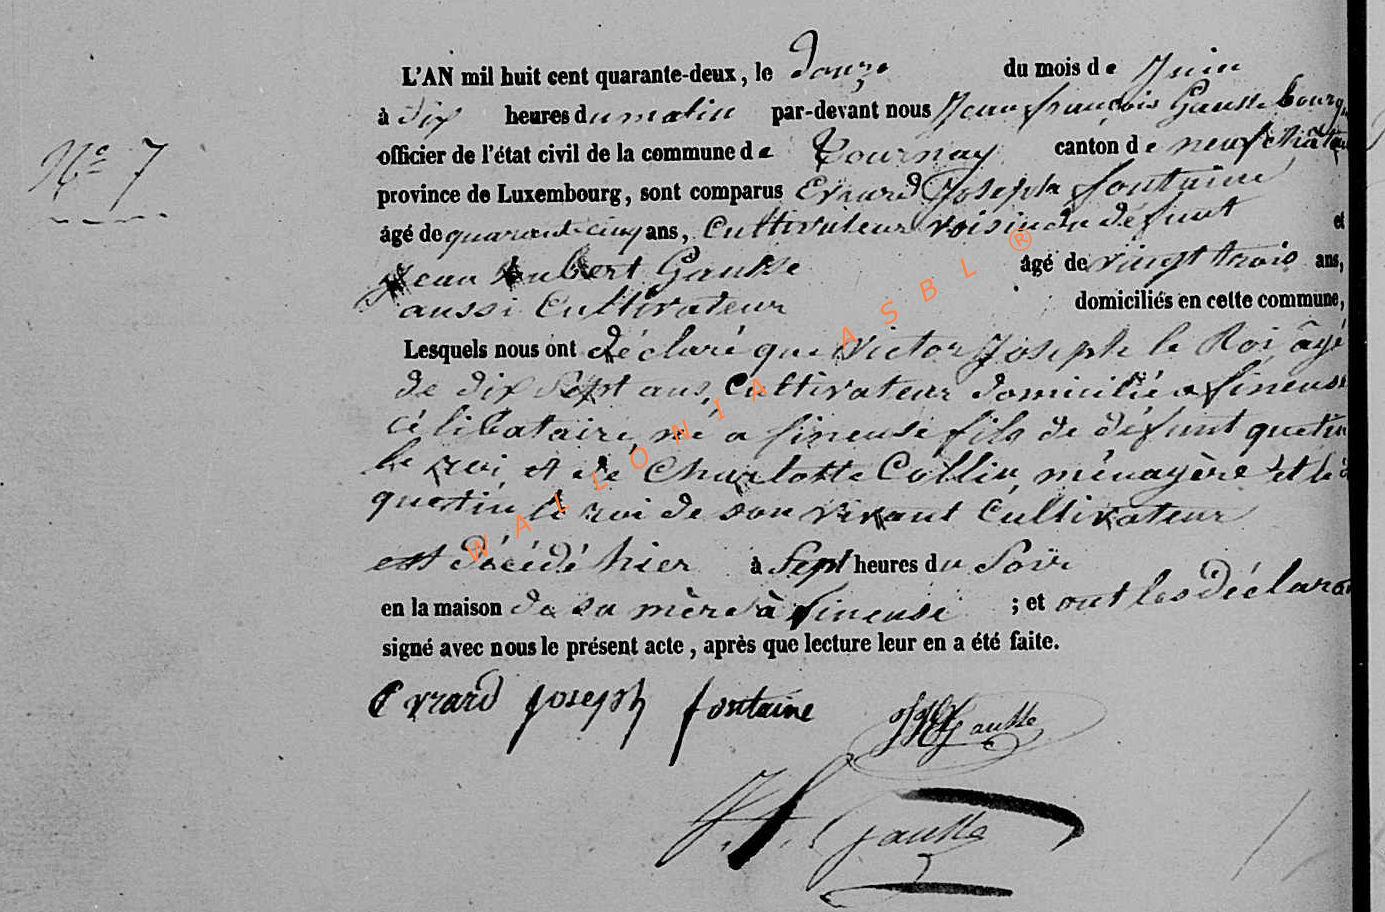 N° 7
L'AN mil huit cent quarante-deux, le douze du mois de Juin
à dix heures du matin par-devant nous Jean françois Gausse bourg
officier de l'état civil de la commune de Tournay canton de neufchateau
province de Luxembourg, sont comparus Evrard Joseph fontaine
âgé de quarante cinq ans, Cultivateur voisin du défunt et
Jean hubert Gausse âgé de vingt trois ans,
aussi Cultivateur domiciliés en cette commune,
Lesquels nous ont déclaré que Victor Joseph le Roi âgé
de dix sept ans, Cultivateur domicilié a fineuse
célibataire, né a fineuse fils de défunt quetin
le roi et de Charlotte Collin, ménagère et le d
questin le roi de son vivant Cultivateur
est décédé hier à Sept heures du Soir
en la maison de sa mère à fineuse ; et ont les déclarant
signé avec nous le présent acte, après que lecture leur en a été faite.
Evrard joseph fontaine JH Gausse
J. f. Gausse
WALLONIA ASBL ®